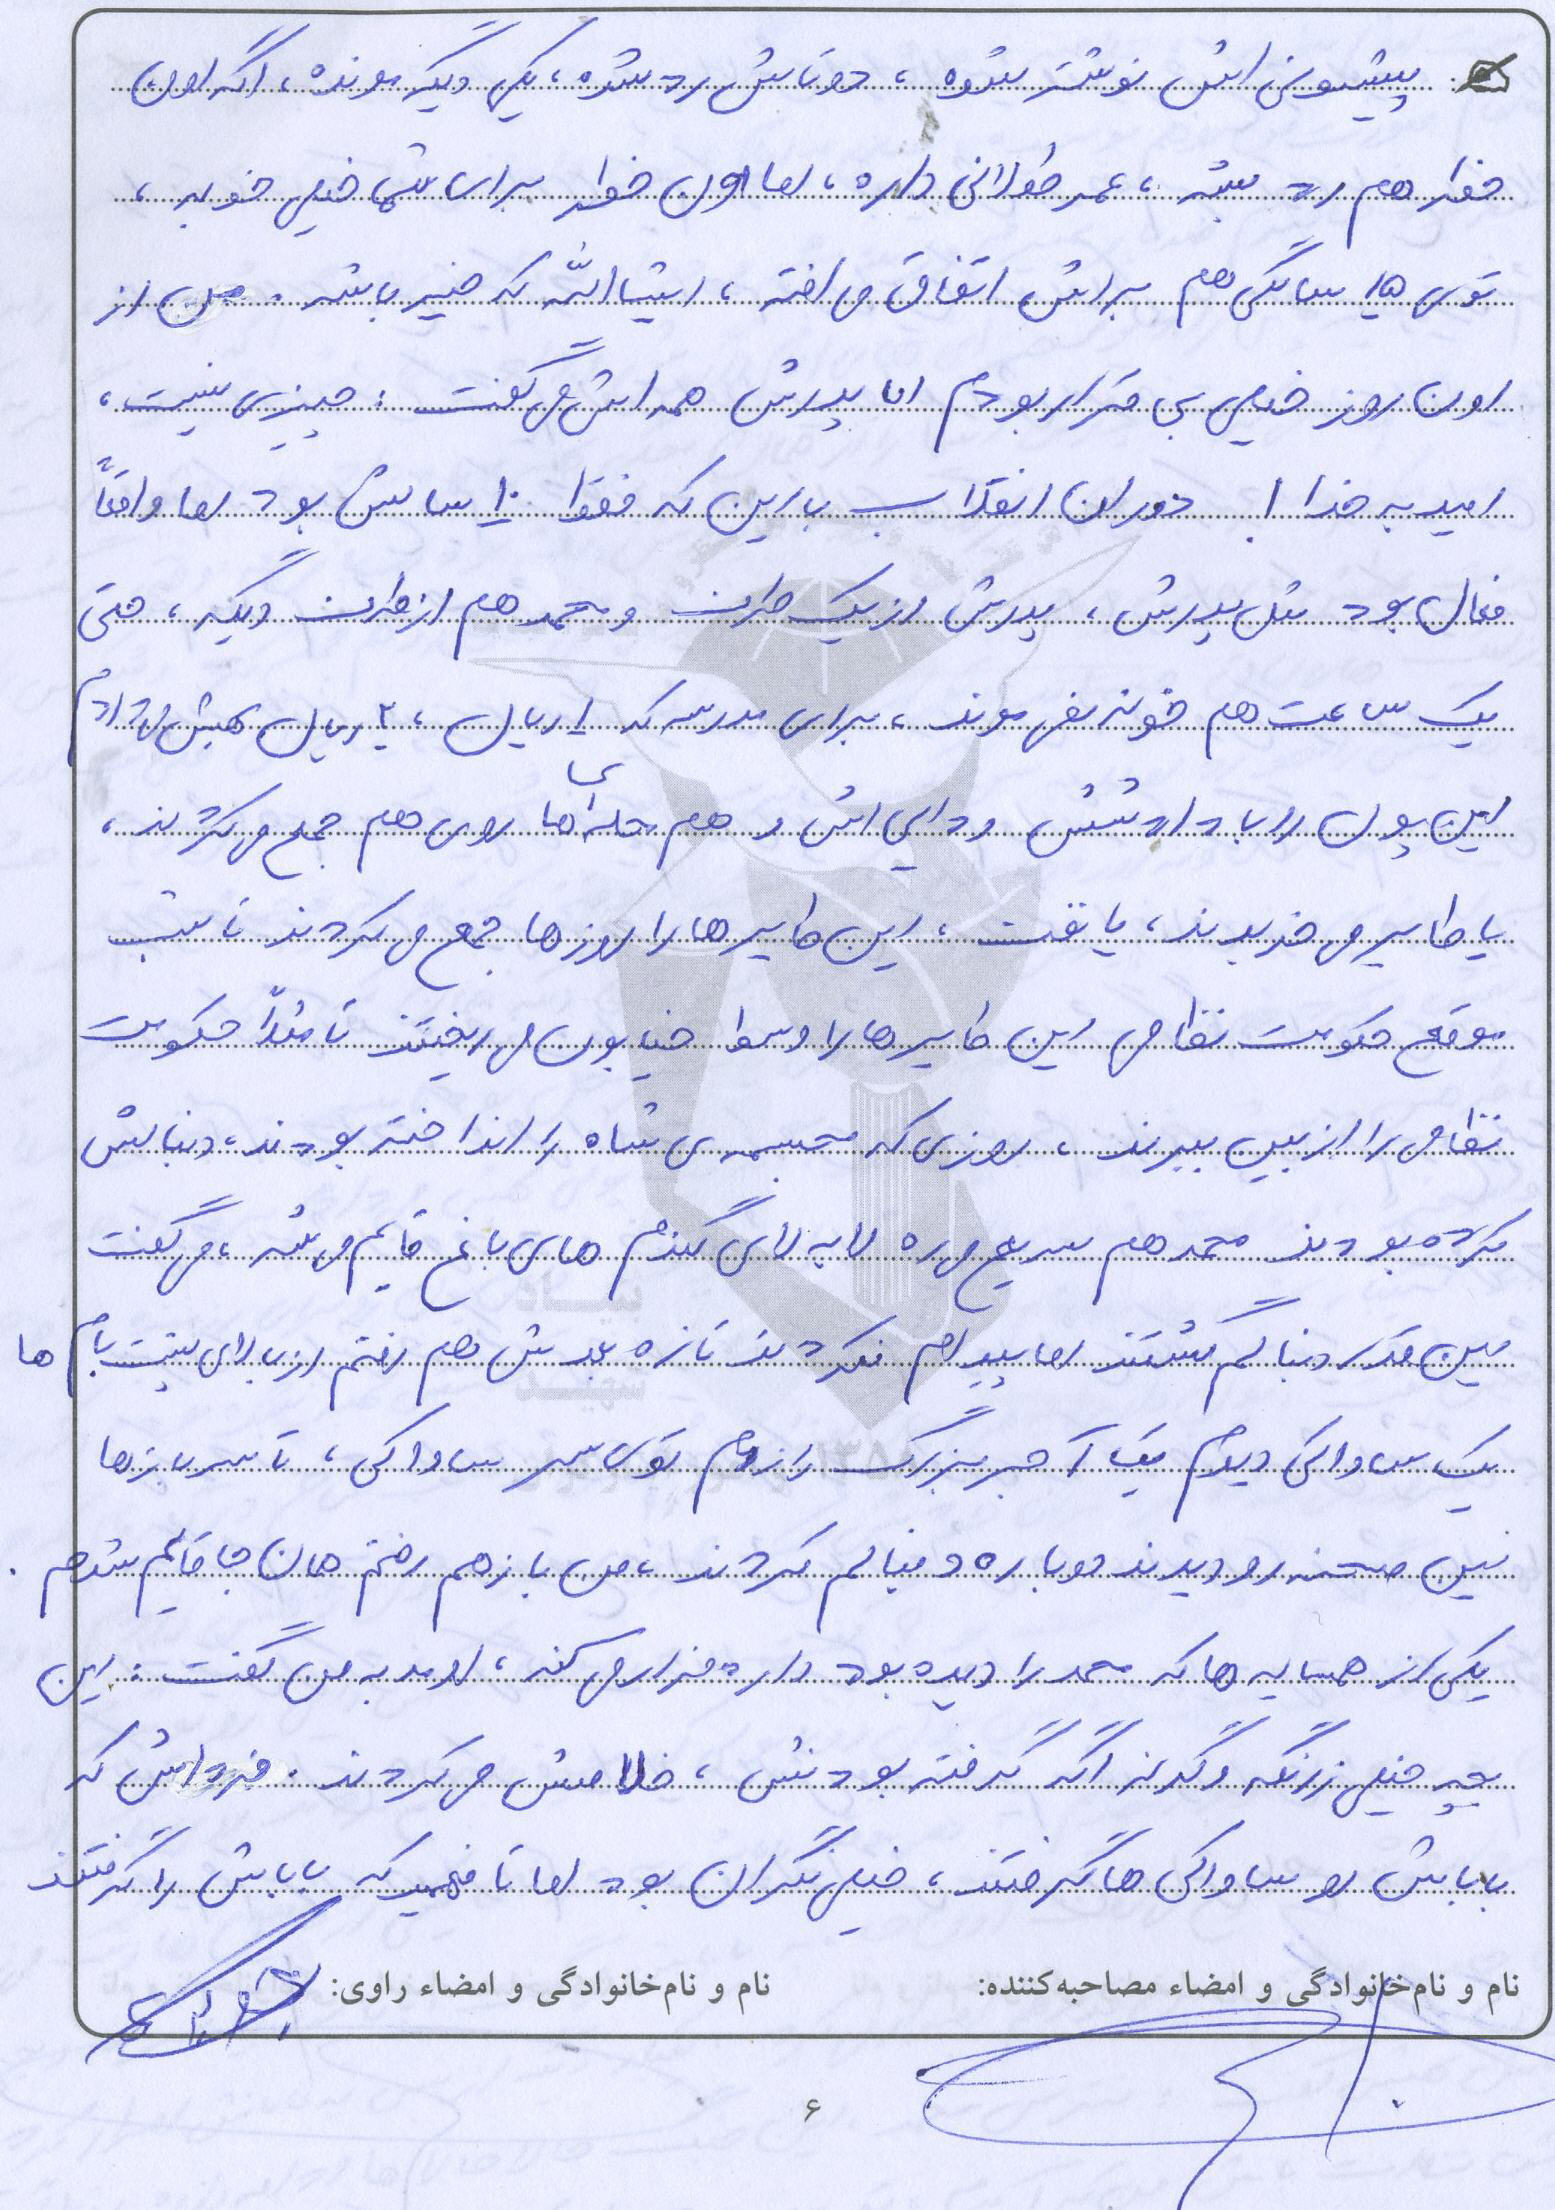 پیشونی اش نوشته شده، دوتاش رد شده، یکی دیگه مونده، اگه اون
خطر هم رد بشه، عمر طولانی داره، اما اون خطر برای شما خیلی خوبه،
توی ۱۵ سالگی هم براش اتفاق می افته، انشاالله که خیر باشه. من از
اون روز خیلی بی قرار بودم اما پدرش همه اش می گفت: چیزی نیست،
امید به خدا! دوران انقلاب با این که فقط ۱۰ سالش بود اما واقعاً
فعال بود مثل پدرش، پدرش از یک طرف و محمد هم از طرف دیگه، حتی
یک ساعت هم خونه نمی موند، برای مدرسه که ۱ ریال، ۲ ریال بهش می دادم
این پول را با داداشش و دایی اش و هم محله ای ها روی هم جمع می کردند،
یا طایر می خریدند، یا نفت، این طایرها را روزها جمع می کردند تا شب
موقع حکومت نظامی این طایرها را وسط خیابون می ریختند تا مثلاً حکومت
نظامی را از بین ببرند، روزی که مجسمه ی شاه را انداخته بودند، دنبالش
کرده بودند محمد هم سریع می ره لا به لای گندم های باغ قایم می شه، می گفت
همین قدر دنبالم گشتند اما پیدام نکردند تازه بعدش هم رفتم از بالای پشت بام ها
یک ساواکی دیدم یک آجر بزرگ را زدم توی سر ساواکی، تا سربازها
این صحنه رو دیدند دوباره دنبالم کردند، من باز هم رفتم همان جا قایم شدم.
یکی از همسایه ها که محمد را دیده بود داره فرار می کنه، اومد به من گفت: این
بچه خیلی زرنگه وگرنه اگه گرفته بودنش، خلاصش می کردند. فرداش که
باباش رو ساواکی ها گرفتند، خیلی نگران بود اما تا فهمید که باباش را گرفتند
نام و نام‌خانوادگی و امضاء مصاحبه‌کننده: نام و نام‌خانوادگی و امضاء راوی:
۶